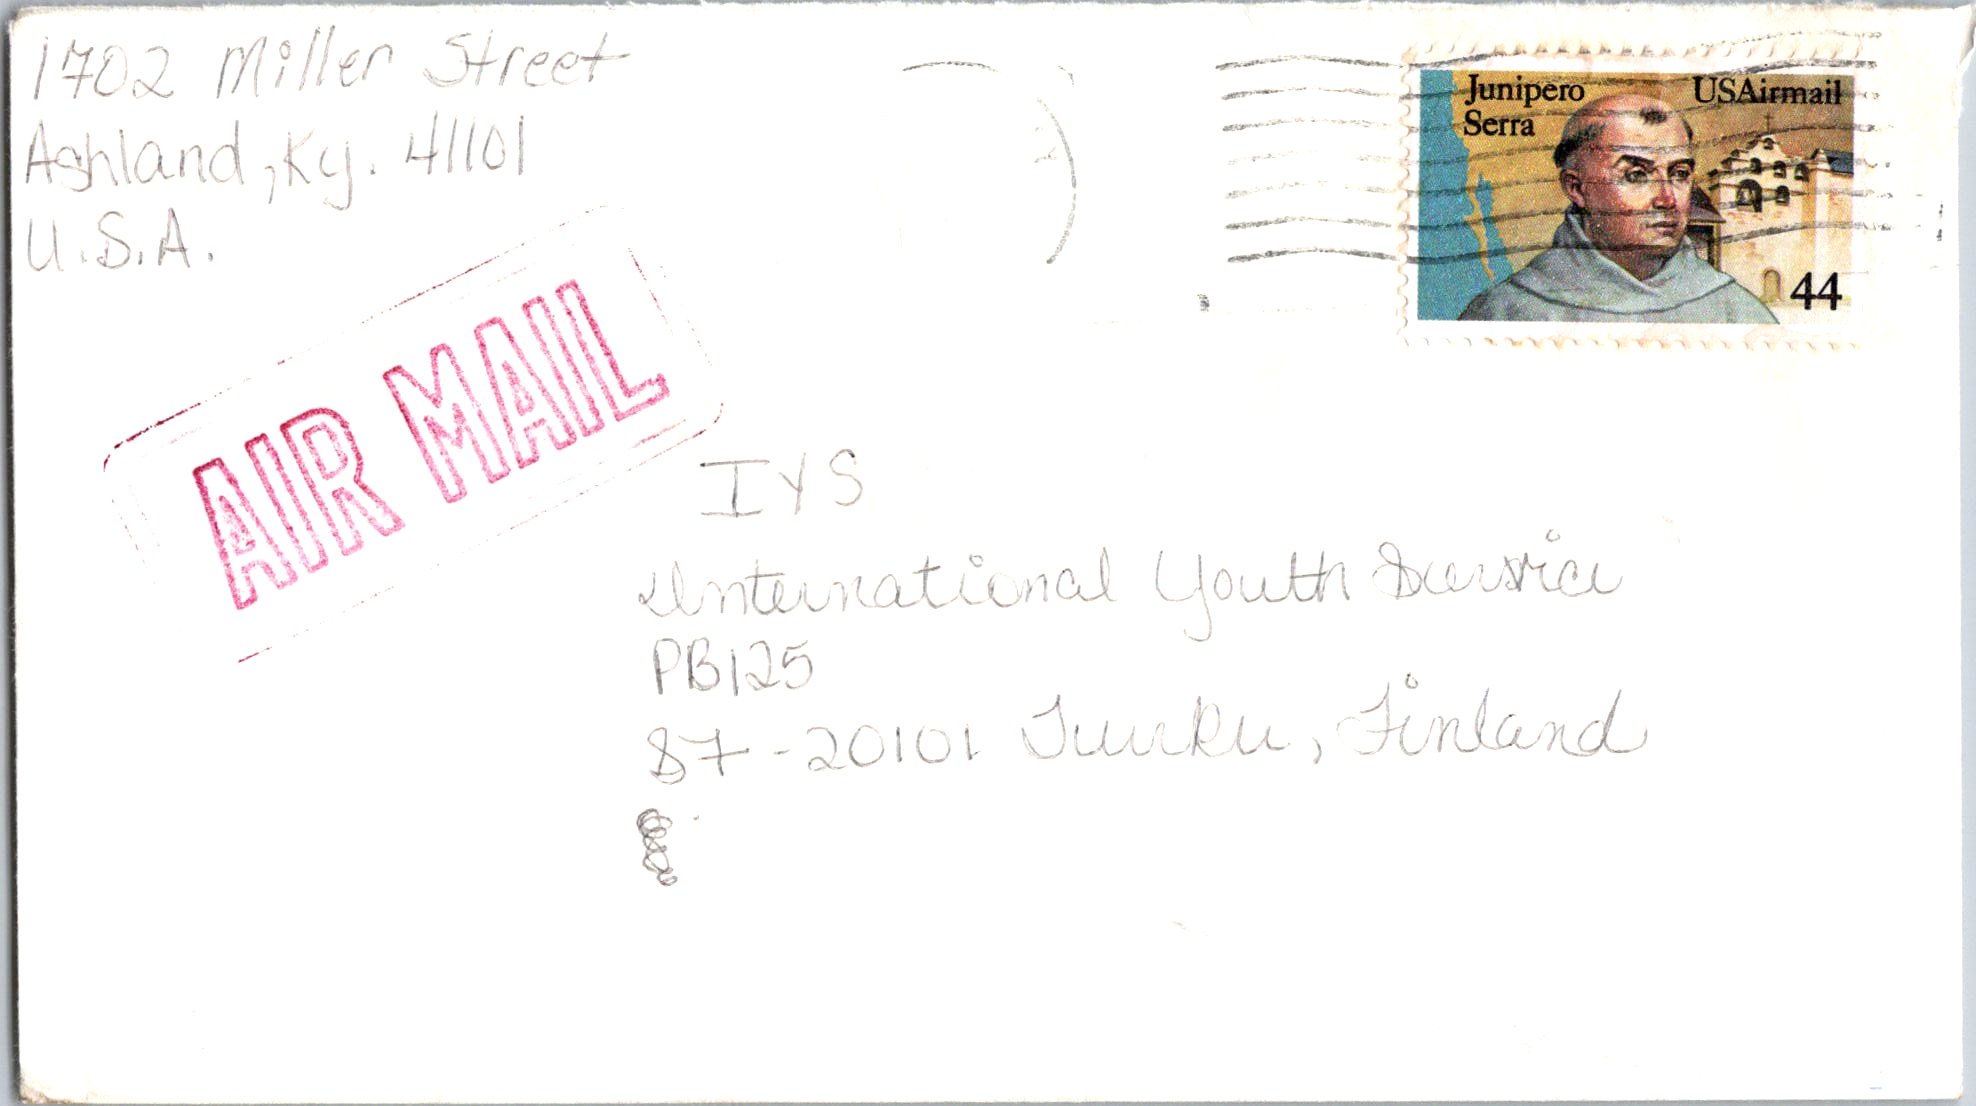 1702 Miller Street
Ashland, Ky. 41101
U.S.A.
Junipero
Serra
USAirmail
44
AIR MAIL
IYS
International Youth Service
PB125
SF-20101 Turku, Finland